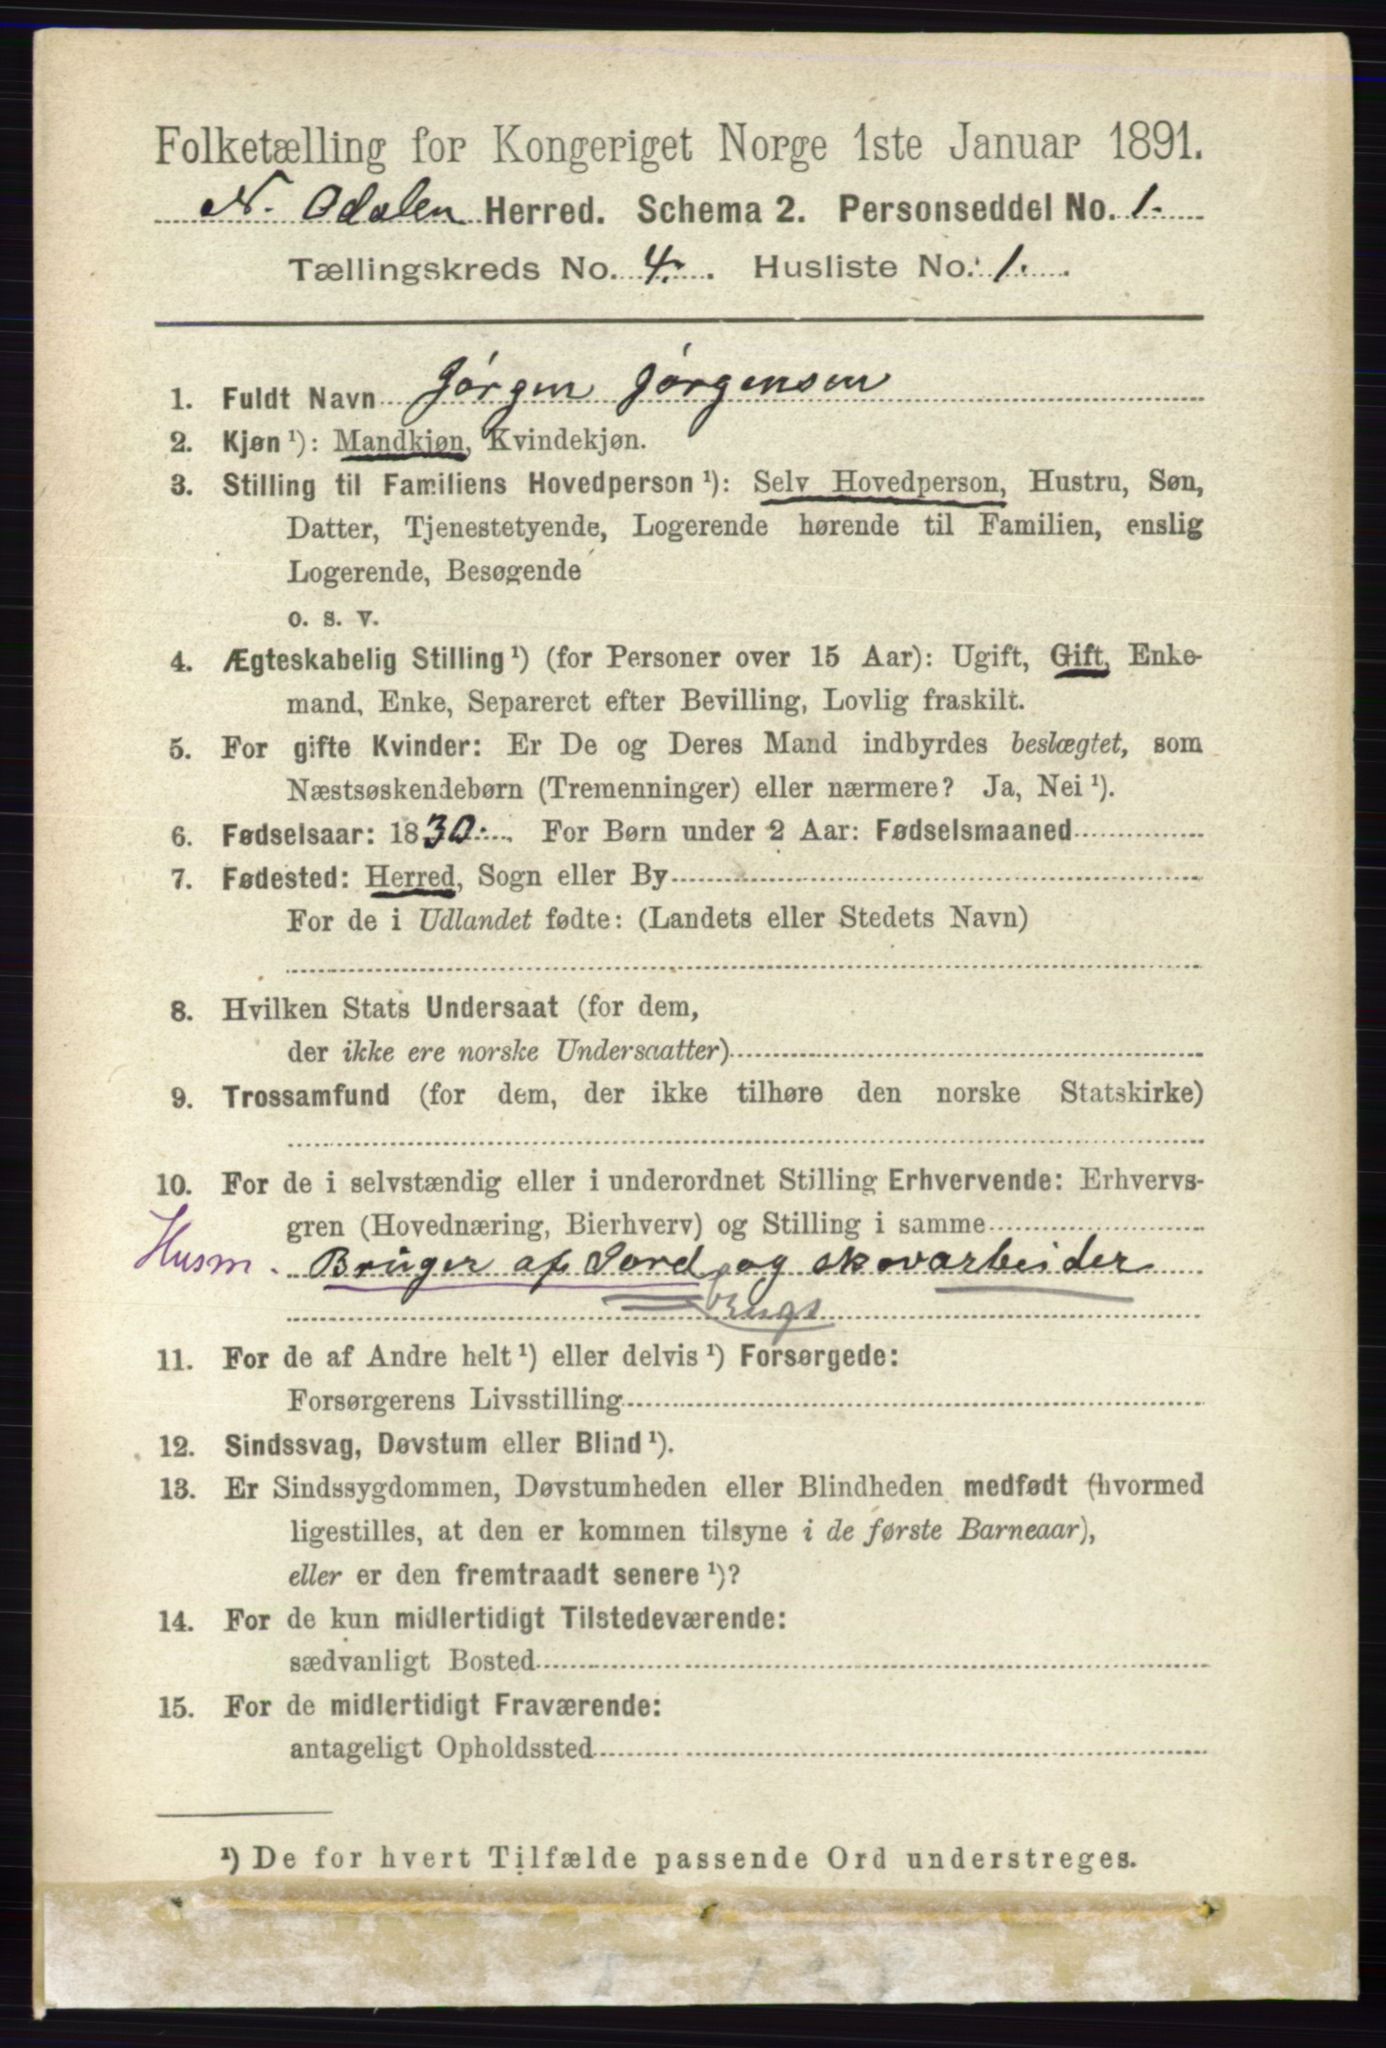 Folketælling for Kongeriget Norge 1ste Januar 1891.
N. Odalen Herred. Schema 2. Personseddel No. 1.
Tællingskreds No. 4. Husliste No. 1.
1. Fuldt Navn Jörgen Jörgensen
2. Kjøn ¹): Mandkjøn, Kvindekjøn.
3. Stilling til Familiens Hovedperson ¹): Selv Hovedperson, Hustru, Søn,
Datter, Tjenestetyende, Logerende hørende til Familien, enslig
Logerende, Besøgende
o. s. v.
4. Ægteskabelig Stilling ¹) (for Personer over 15 Aar): Ugift, Gift, Enke-
mand, Enke, Separeret efter Bevilling, Lovlig fraskilt.
5. For gifte Kvinder: Er De og Deres Mand indbyrdes beslægtet, som
Næstsøskendebørn (Tremenninger) eller nærmere? Ja, Nei ¹).
6. Fødselsaar: 1830. For Børn under 2 Aar: Fødselsmaaned
7. Fødested: Herred, Sogn eller By
For de i Udlandet fødte: (Landets eller Stedets Navn)
8. Hvilken Stats Undersaat (for dem,
der ikke ere norske Undersaatter)
9. Trossamfund (for dem, der ikke tilhøre den norske Statskirke)
10. For de i selvstændig eller i underordnet Stilling Erhvervende: Erhvervs-
gren (Hovednæring, Bierhverv) og Stilling i samme
Husm. Bruger af Jord og skovarbeider
11. For de af Andre helt ¹) eller delvis ¹) Forsørgede:
Forsørgerens Livsstilling
12. Sindssvag, Døvstum eller Blind ¹).
13. Er Sindssygdommen, Døvstumheden eller Blindheden medfødt (hvormed
ligestilles, at den er kommen tilsyne i de første Barneaar),
eller er den fremtraadt senere ¹)?
14. For de kun midlertidigt Tilstedeværende:
sædvanligt Bosted
15. For de midlertidigt Fraværende:
antageligt Opholdssted
¹) De for hvert Tilfælde passende Ord understreges.